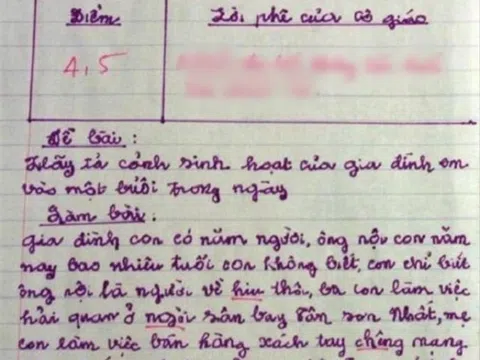 Điểm
Lời phê của cô giáo
4,5
Đề bài:
Hãy tả cảnh sinh hoạt của gia đình em
vào một buổi trong ngày
Làm bài:
gia đình con có năm người, ông nội con năm
nay bao nhiêu tuổi con không biết, con chỉ biết
ông nội là người về hiu thôi, ba con làm việc
hải quan ở ngoài sân bay Tân Sơn Nhất, mẹ
con làm việc bán hàng xách tay chồng mang